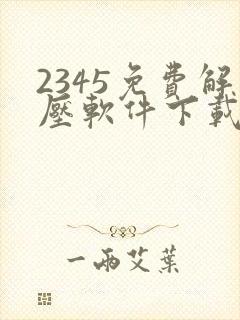 2345免費解
壓軟件下載
一兩艾葉